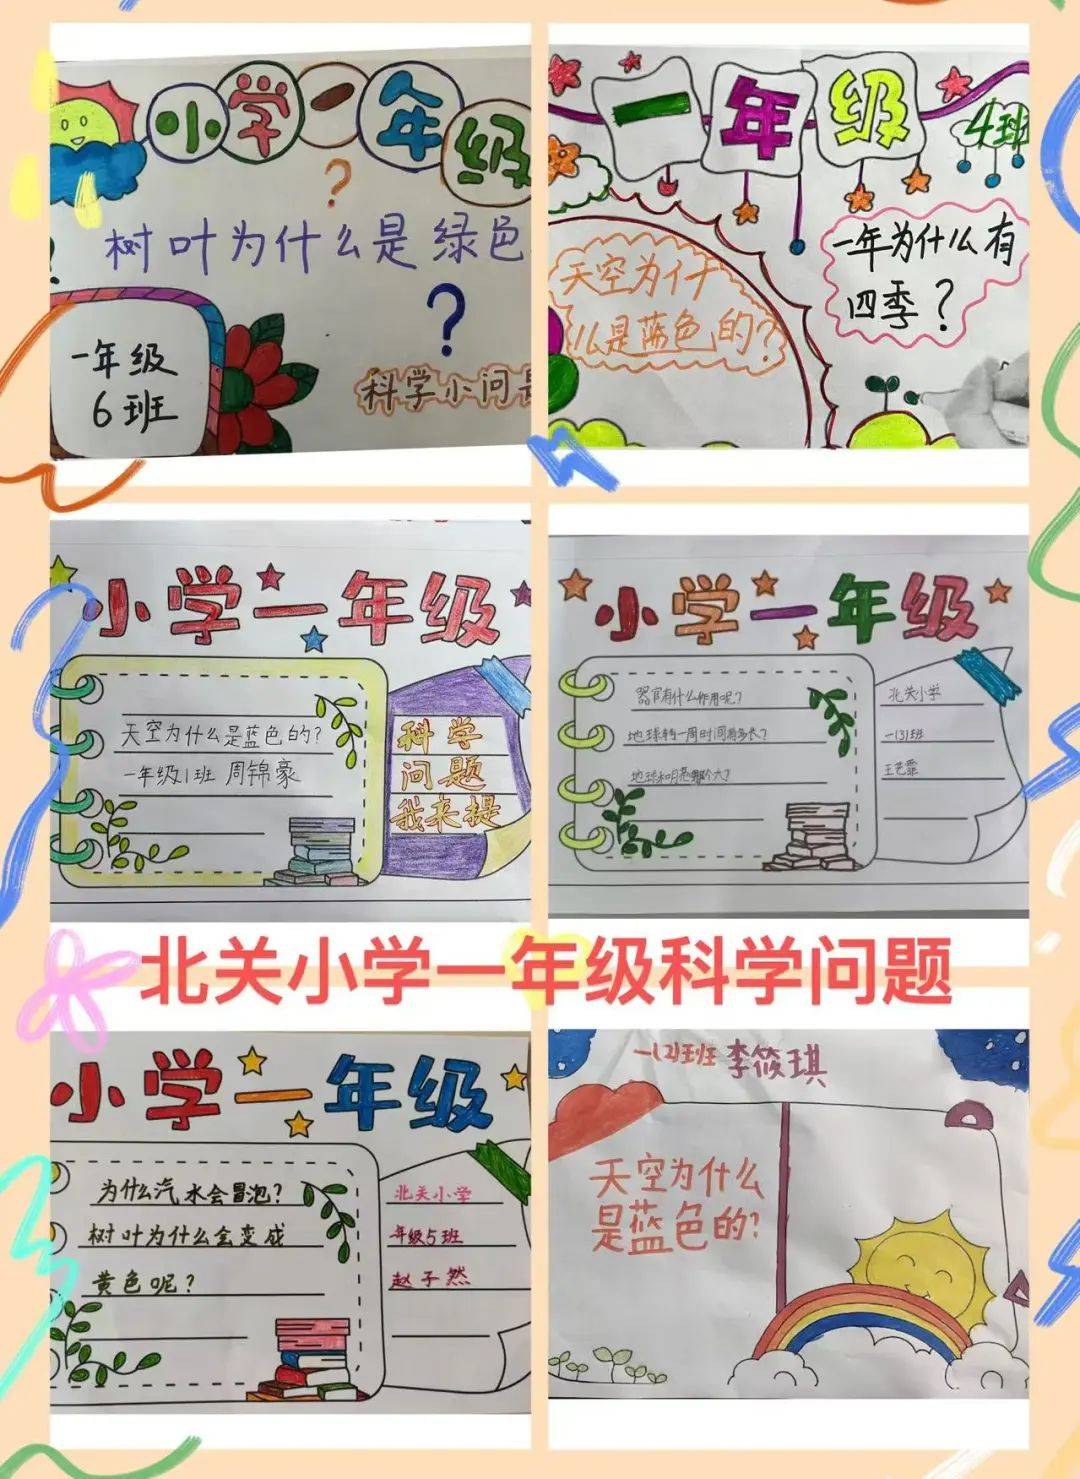 小学一年级
?
树叶为什么是绿色
?
一年级
6班
科学小问
一年级
4班
天空为什
么是蓝色的?
一年为什么有
四季?
小学一年级
天空为什么是蓝色的?
一年级1班 周锦豪
科学
问题
我来提
小学一年级
器官有什么作用呢?
地球转一周时间有多长?
地球和月亮哪个大?
北关小学
一(3)班
王艺霏
北关小学一年级科学问题
小学一年级
为什么汽水会冒泡?
树叶为什么会变成
黄色呢?
北关小学
年级5班
赵子然
一(2)班班 李筱琪
天空为什么
是蓝色的?